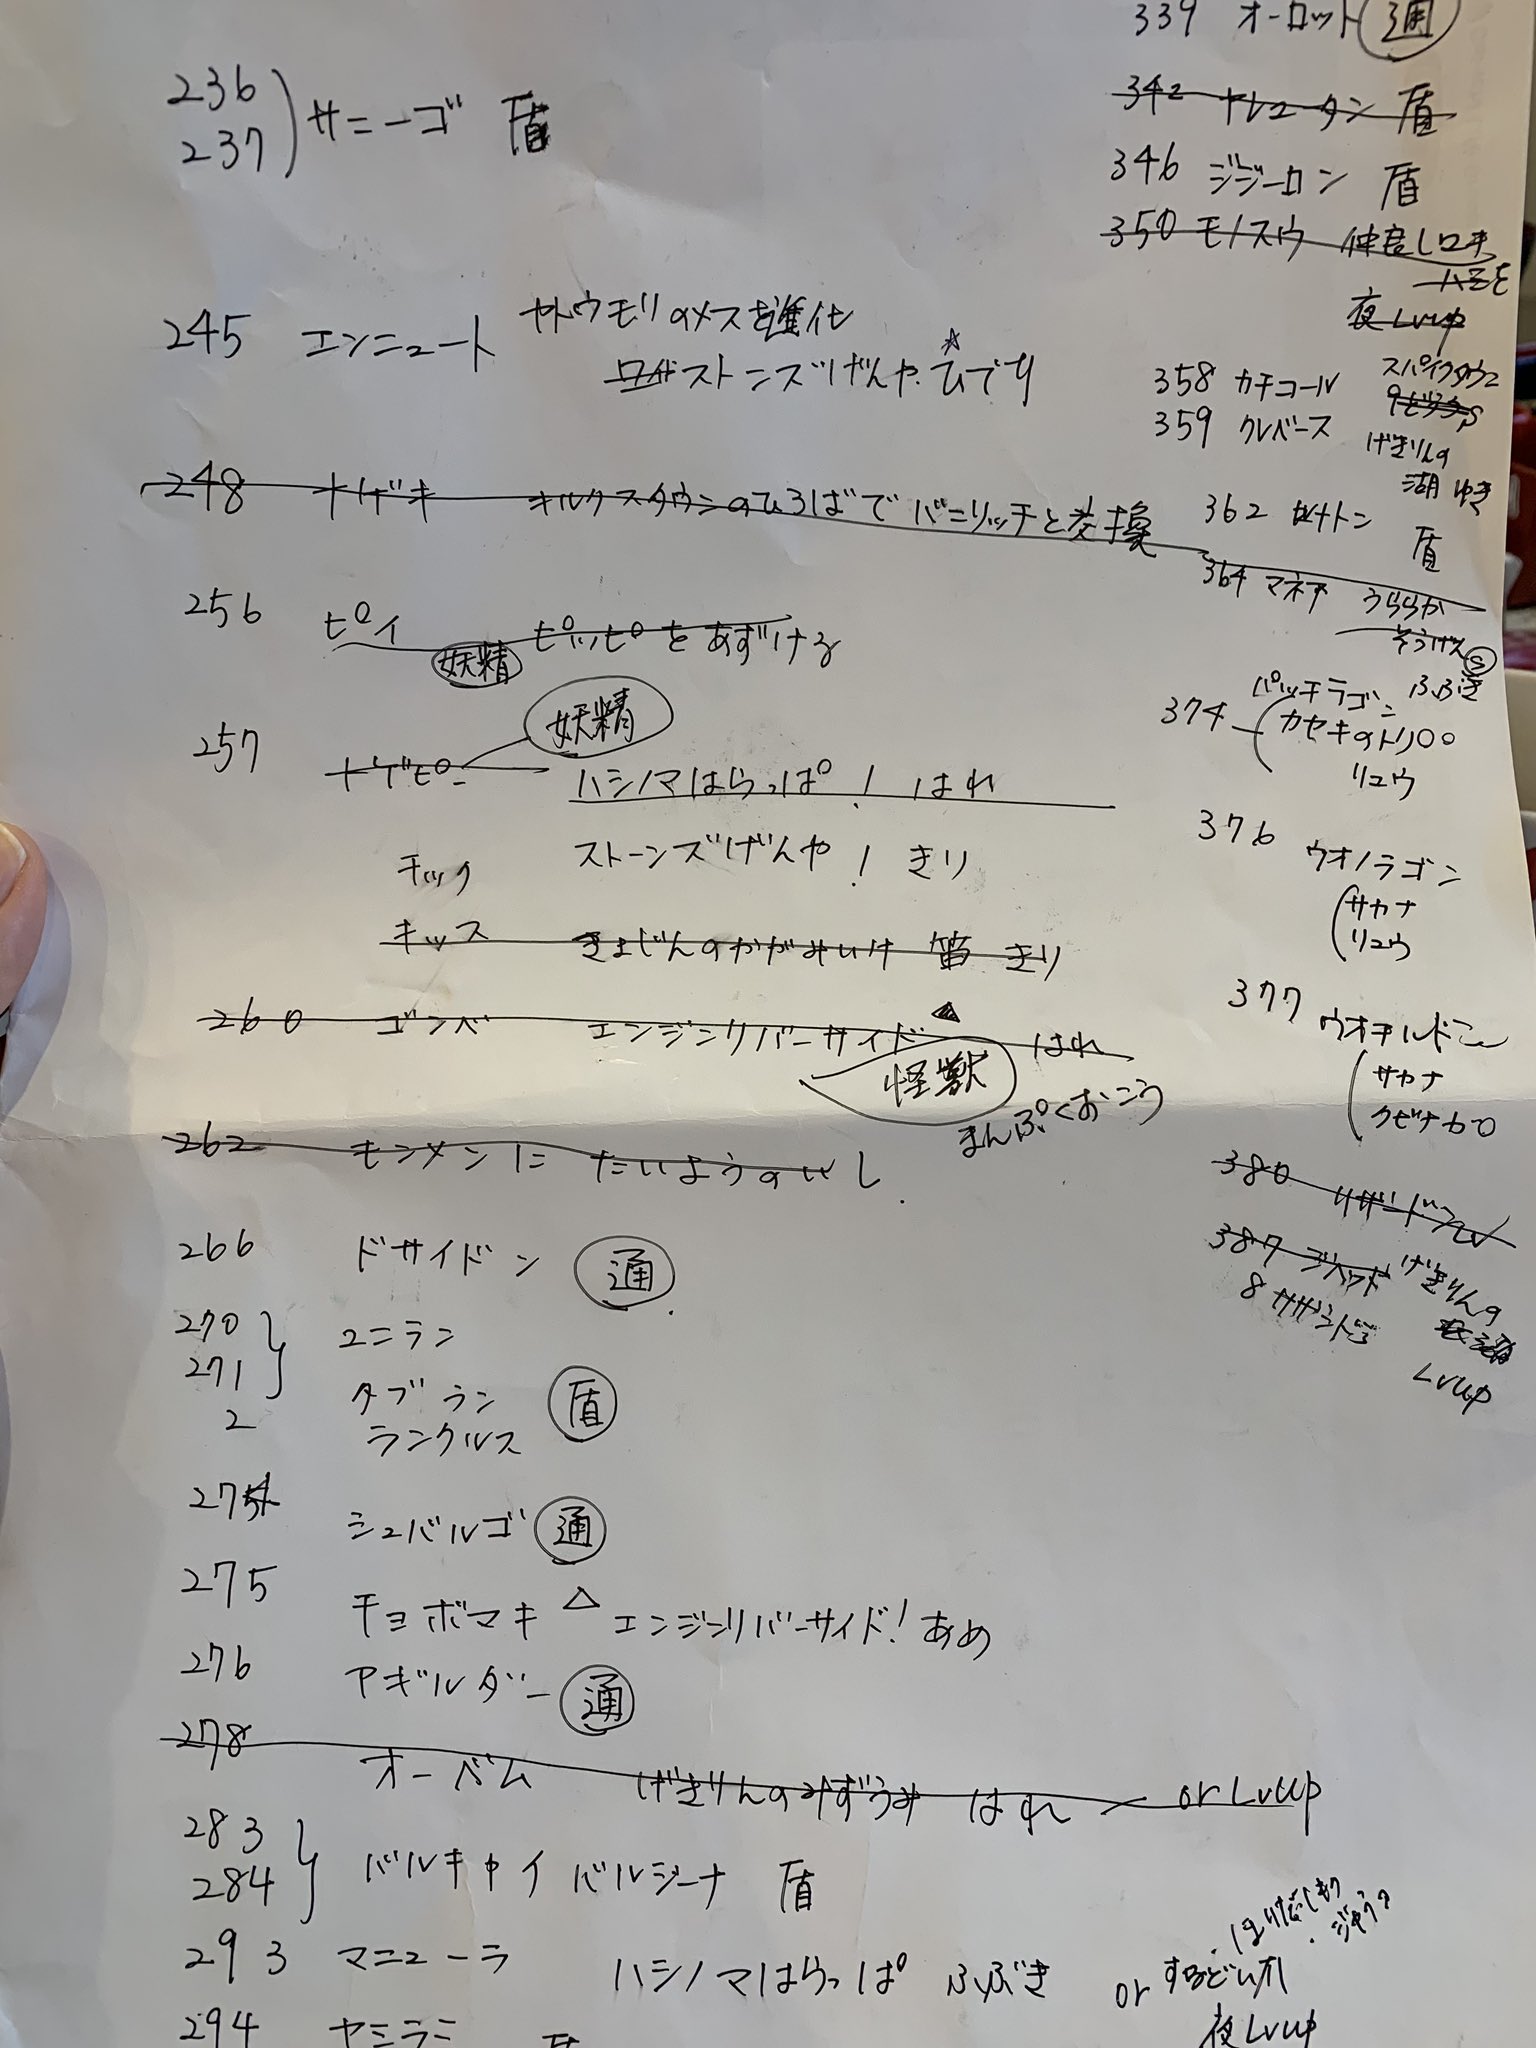 236
237
サニーゴ 盾
245 エンニュート ヤトウモリのメスを進化
ストーンズげんや ひでり
248 ナゲキ キルクスタウンのひろばでバニリッチと交換
256 ピィ ピッピをあずける
妖精
妖精
257 トゲピー ハシノマはらっぱ! はれ
チック ストーンズげんや! きり
キッス きょじんのかがみいけ 笛 きり
260 ゴンベ エンジンリバーサイド はれ
怪獣
まんぷくおこう
262 モンメンに たいようのいし
266 ドサイドン 通
270 ユニラン
271 ダブラン 盾
2 ランクルス
シュバルゴ 通
275 チョボマキ △ エンジンリバーサイド! あめ
276 アギルダー 通
278 オーベム げきりんのみずうみ はれ or LvUp
283
284
バルチャイ バルジーナ 盾
293 マニューラ ハシノマはらっぱ ふぶき or するどい
夜LvUp
294 ヤミラミ
339 オーロット 通
342 ヤレユータン 盾
346 ジジーロン 盾
350 モスノウ 仲良し
夜LvUp
358 カチコール スパイクタウン
359 クレベース げきりんの
湖 ゆき
362 ヒドイデ 盾
364 マネネ うららか
そうげん
ふぶき
374 パッチラゴン
カセキのトリ
リュウ
376 ウオノラゴン
サカナ
リュウ
377 ウオチルドン
サカナ
クビナガ
380 リザードン
387 ジヘッド げきりんの
8 サザンドラ
LvUp